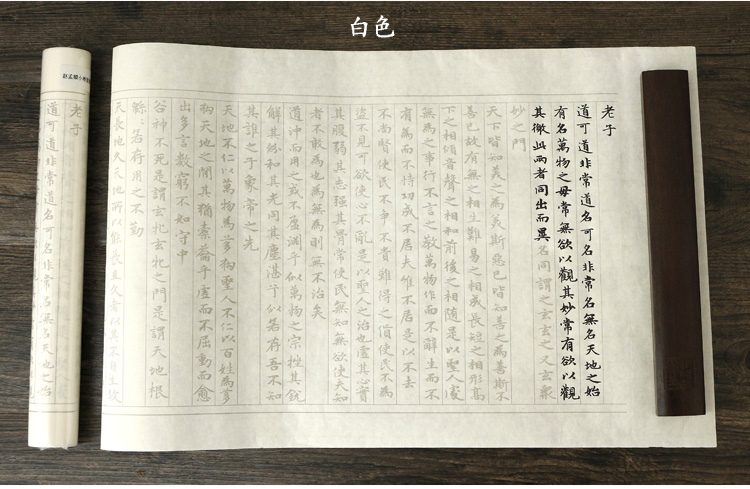 白色
赵孟頫小楷
老子
道可道非常道名可名非常名無名天地之始
有名萬物之母常無欲以觀其妙常有欲以觀
其徼此兩者同出而異名同謂之玄玄之又玄衆
妙之門
天下皆知美之為美斯惡已皆知善之為善斯不
善已故有無之相生難易之相成長短之相形高
下之相傾音聲之相和前後之相隨是以聖人處
無為之事行不言之教萬物作而不辭生而不
有為而不恃功成不居夫惟不居是以不去
不尚賢使民不爭不貴難得之貨使民不為
盜不見可欲使心不亂是以聖人之治也虛其心實
其腹弱其志强其骨常使民無知無欲使夫知
者不敢為也為無為則無不治矣
道沖而用之或不盈淵乎似萬物之宗挫其銳
解其紛和其光同其塵湛乎似若存吾不知
其誰之子象帝之先
天地不仁以萬物為芻狗聖人不仁以百姓為芻
狗天地之間其猶橐籥乎虛而不屈動而愈
出多言數窮不如守中
谷神不死是謂玄牝玄牝之門是謂天地根
緜〻若存用之不勤
天長地久天地所以能長且久者以其不自生故
老子
道可道非常道名可名非常名無名天地之始